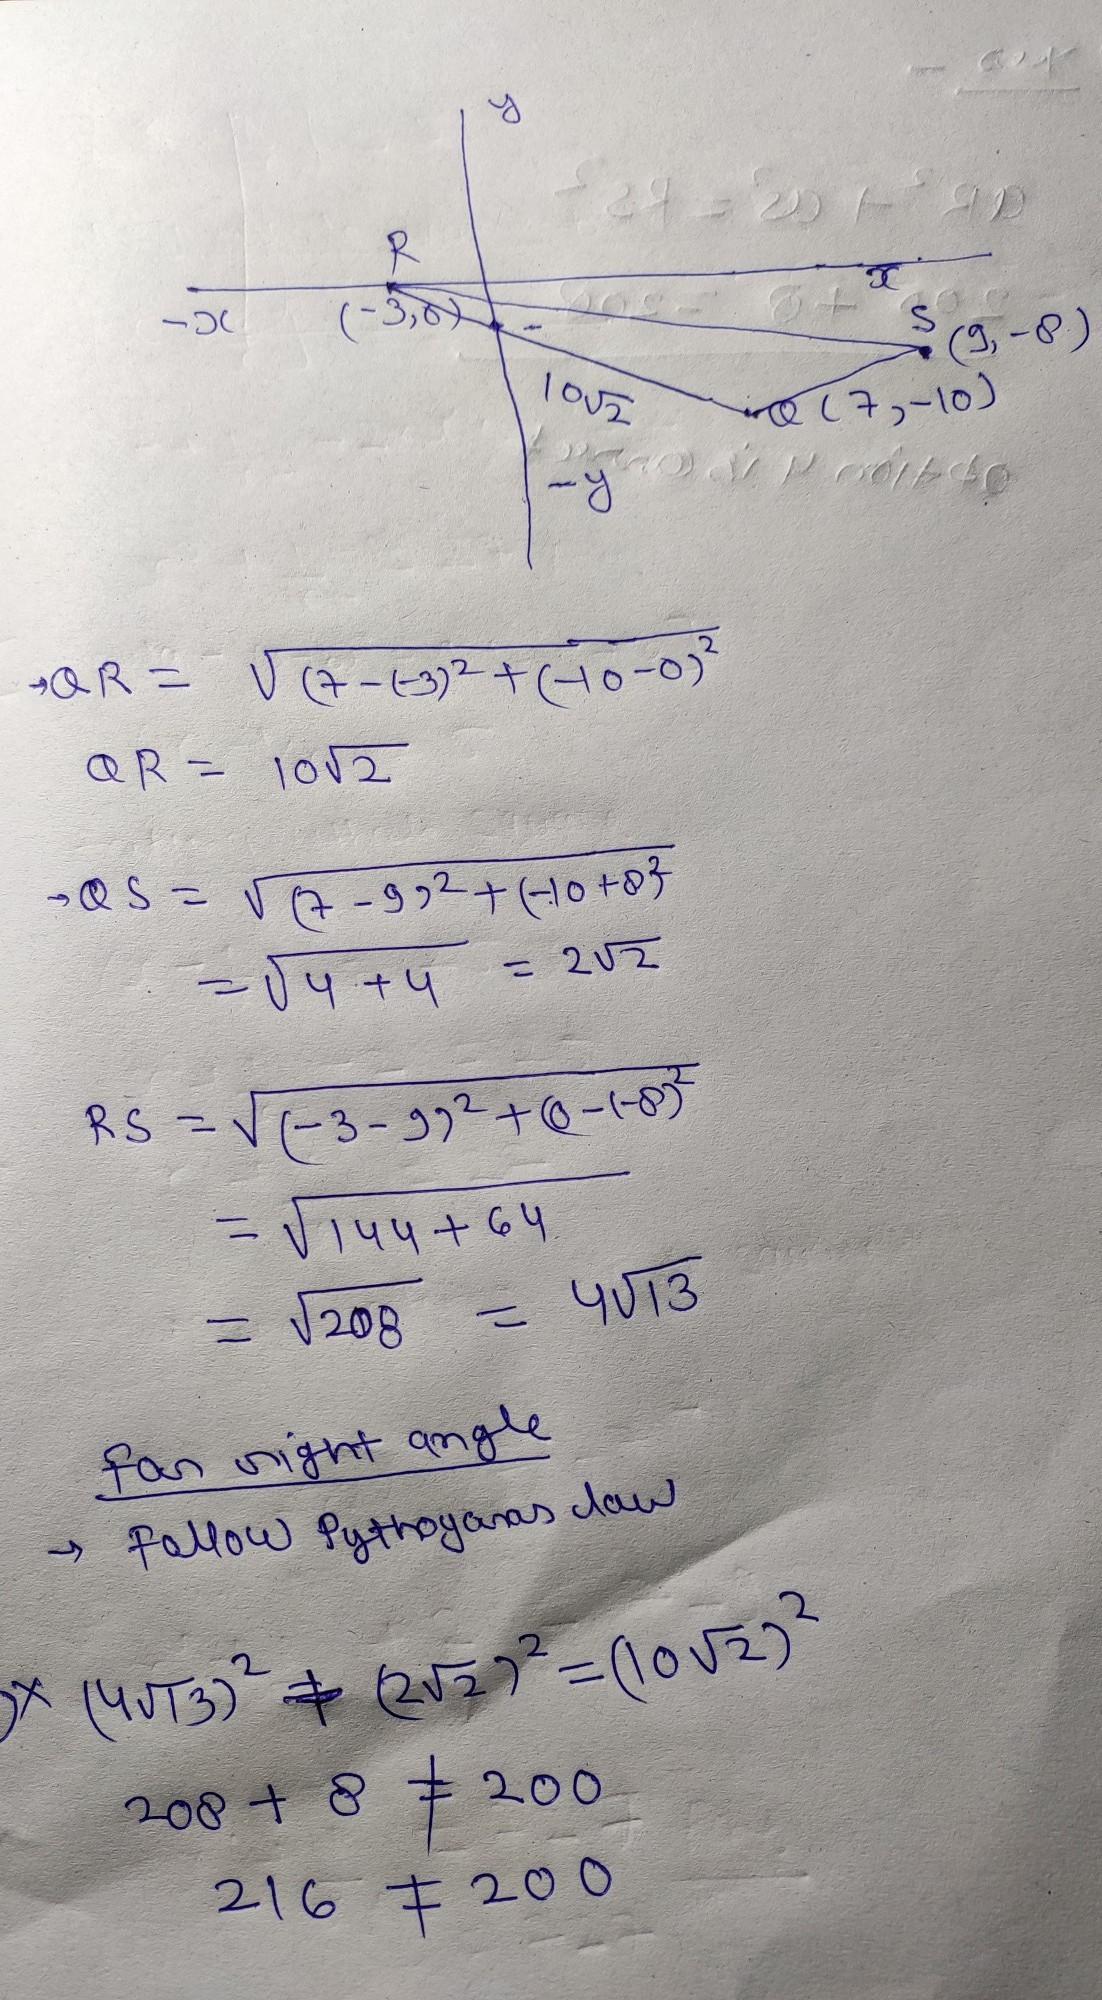 y
R
x
-x
(-3,0)
S
(9,-8)
10√2
Q (7,-10)
-y
→QR = √(7-(-3)²+(-10-0)²
QR = 10√2
→QS = √(7-9)²+(-10+8)²
= √4+4 = 2√2
RS = √(-3-9)²+(0-(-8)²
= √144+64
= √208 = 4√13
for right angle
→ Follow Pythogaras law
× (4√13)² + (2√2)² = (10√2)²
208 + 8 ≠ 200
216 ≠ 200